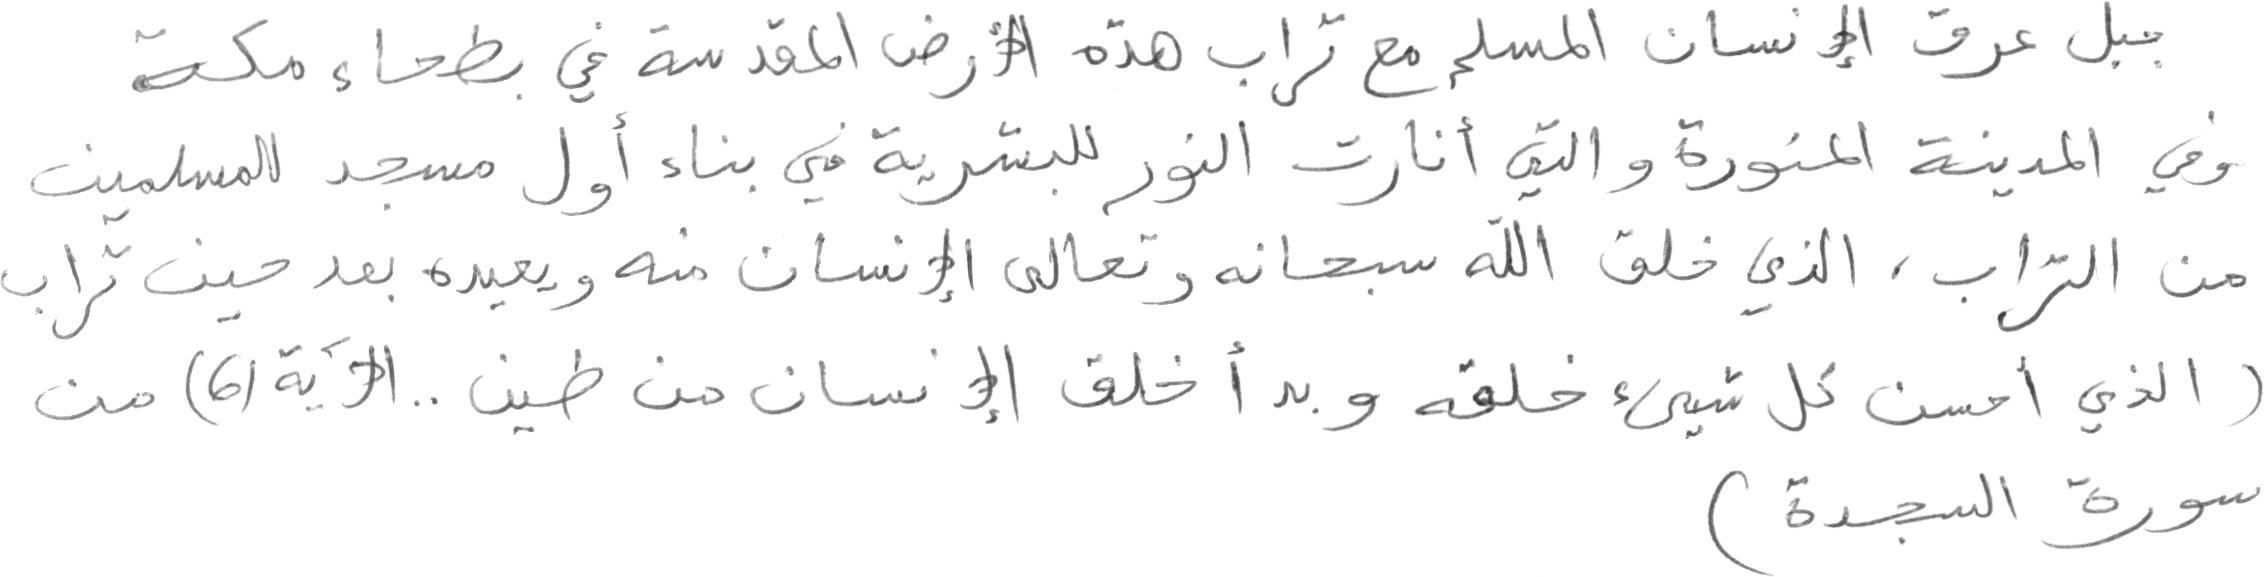 جبل عرق الإنسان المسلم مع تراب هذه الأرض المقدسة في بطحاء مكة
وفي المدينة المنورة والتي أنارت النور للبشرية في بناء أول مسجد للمسلمين
من التراب، الذي خلق الله سبحانه وتعالى الإنسان منه ويعيده بعد حين تراب
(الذي أحسن كل شيىء خلقه وبدأ خلق الإنسان من طين .. الآية (6) من
سورة السجدة)